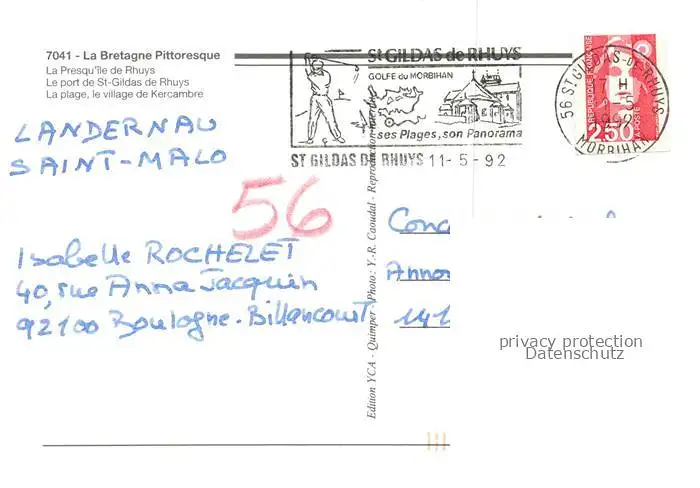 7041 - La Bretagne Pittoresque
La Presqu'île de Rhuys
Le port de St-Gildas de Rhuys
La plage, le village de Kercambre
St GILDAS de RHUYS
GOLFE du MORBIHAN
ses Plages, son Panorama
ST GILDAS DE RHUYS 11-5-92
56 ST-GILDAS-DE-RHUYS
MORBIHAN
1992
REPUBLIQUE FRANÇAISE
2,50
LA POSTE
LANDERNAU
SAINT-MALO
56
Isabelle ROCHELET
40, rue Anna Jacquin
92100 Boulogne-Billancourt
Edition YCA - Quimper - Photo : Y.-R. Caoudal - Reproduction interdite
Conc
Anno
141
privacy protection
Datenschutz